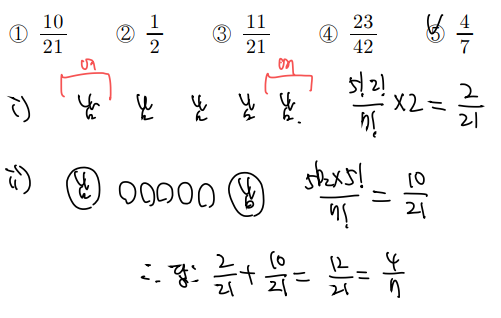 ① 10/21 ② 1/2 ③ 11/21 ④ 23/42 ⑤ 4/7
여 여
i) 남 남 남 남 남 5!2!/7! × 2 = 2/21
ii) 남 ○○○○○ 남 5P2×5!/7! = 10/21
∴ 2/21 + 10/21 = 12/21 = 4/7